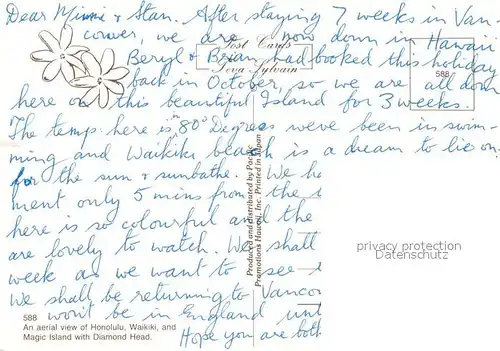 Dear Minnie & Stan. After staying 7 weeks in Van-
couver, we are now down in Hawaii
Post Cards
Beryl & Brian had booked this holiday
Teva Sylvain
588
back in October, so we are all down
here on this beautiful Island for 3 weeks.
The temp: here is in 80° Degress weve been in swim-
ming and Waikiki beach is a dream to lie on.
for the sun & sunbathe. We ha
ment only 5 mins from the
here is so colourful and the
are lovely to watch. We shall
week as we want to see
We shall be returning to Vancou
wont be in England unt
Hope you are both
Produced and distributed by Pacific
Promotions Hawaii, Inc. Printed in Japan
privacy protection
Datenschutz
588
An aerial view of Honolulu, Waikiki, and
Magic Island with Diamond Head.